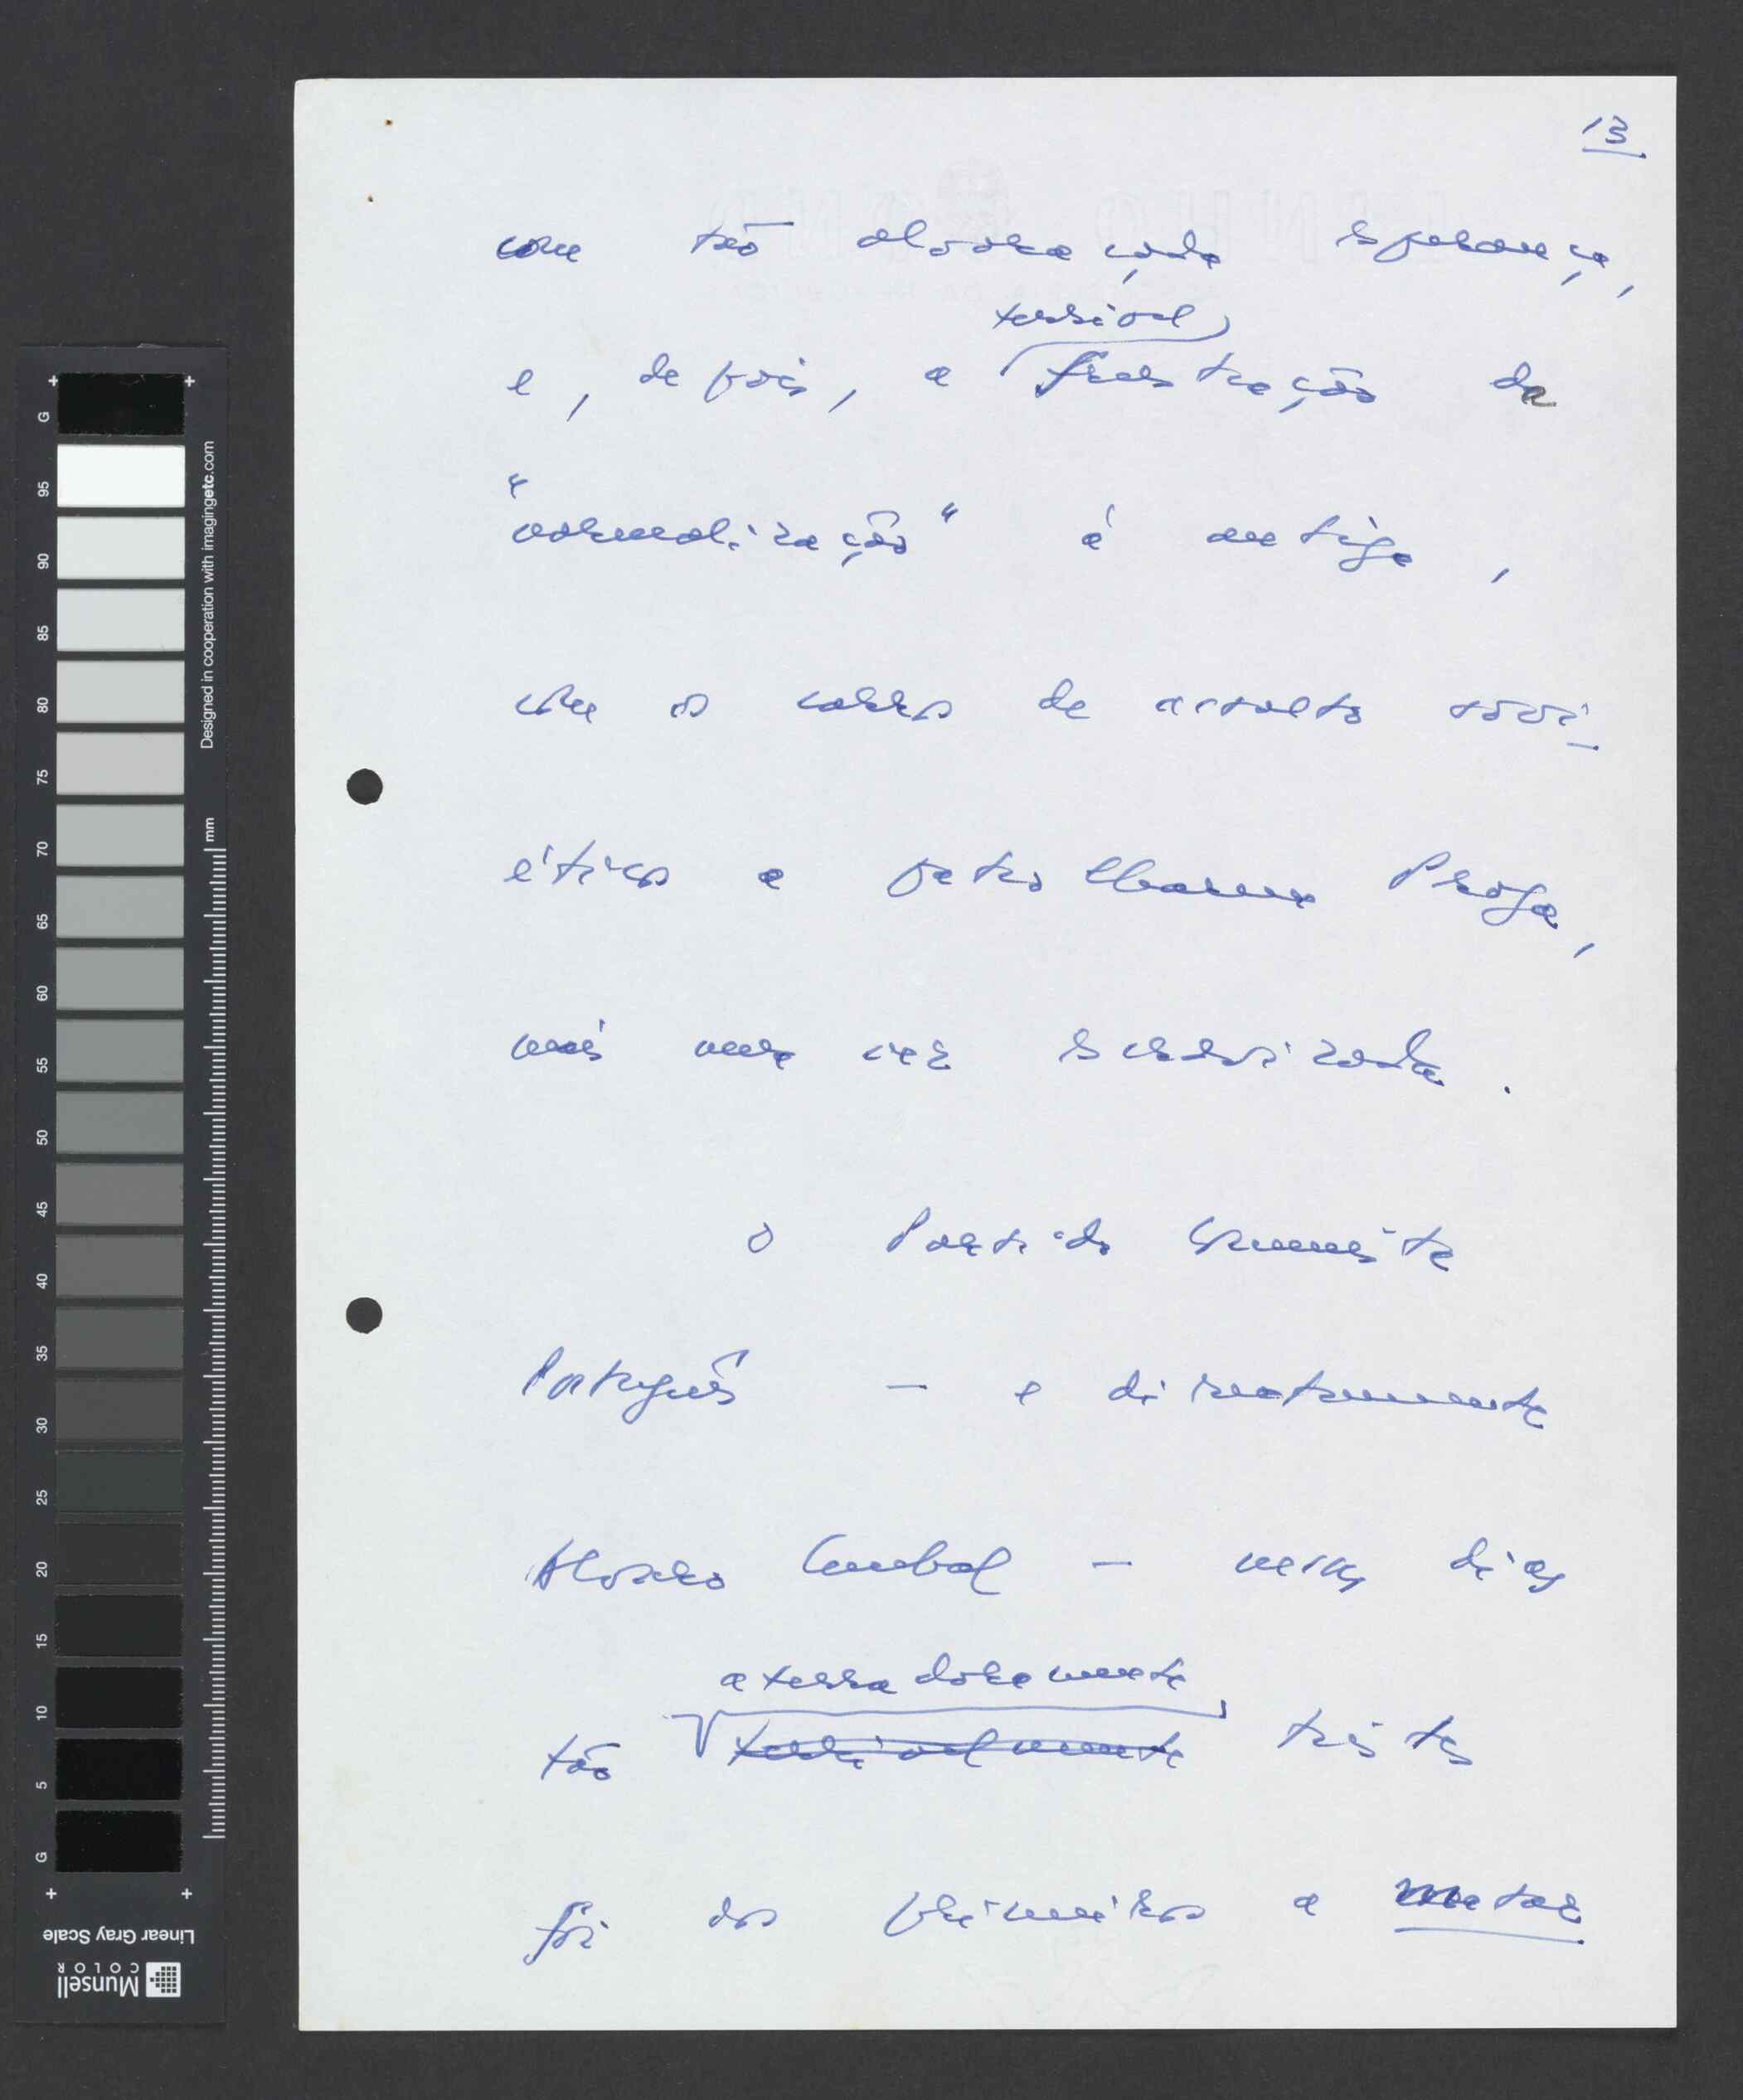 13
com tão alvoraçada esperança,
terrível
e, depois, a frustração da
"normalização" à antiga,
com os carros de assalto sovi-
éticos a patrulharem Praga,
mais uma vez escravizada.
O Partido Comunista
Português — e directamente
Álvaro Cunhal — nesses dias
aterradoramente
tão terrivelmente tristes
foi dos primeiros a matar
G
95
90
85
80
75
70
65
60
55
50
45
40
35
30
25
20
15
10
5
G
Designed in cooperation with imagingetc.com
mm
Linear Gray Scale
Munsell
COLOR